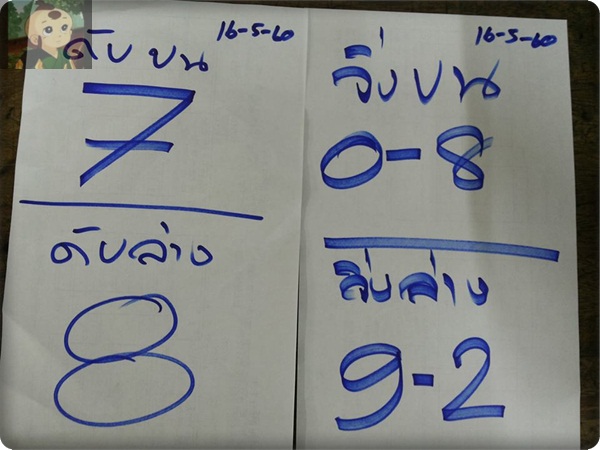 16-5-60
ดับบน
7
ดับล่าง
8
16-5-60
วิ่งบน
0-8
วิ่งล่าง
9-2